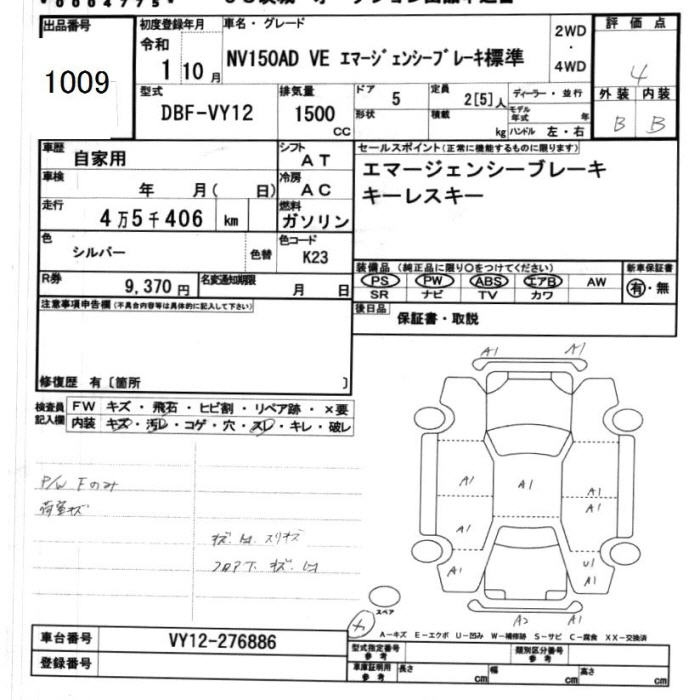 出品番号 初度登録年月 車名・グレード 2WD ・ 4WD 評価点
1009 令和 1 10月 NV150AD VE エマージェンシーブレーキ標準 4
型式 排気量 ドア 定員 ディーラー・並行 外装 内装
DBF-VY12 1500 CC 5 2[5]人 モデル年式 年 B B
形状 積載 kg ハンドル 左・右
車歴 自家用 シフト AT セールスポイント(正常に機能するものに限ります)
車検 年 月( 日) 冷房 AC エマージェンシーブレーキ
走行 4万5千406 km 燃料 ガソリン キーレスキー
色 シルバー 色替 色コード K23
装備品(純正品に限り○をつけてください) 新車保証書
R券 9,370円 名変通知期限 月 日 PS PW ABS エアB AW 有・無
SR ナビ TV カワ
注意事項申告欄(不具合内容等は具体的に記入して下さい) 後日品 保証書・取説
修復歴 有〔箇所 〕
検査員記入欄 FW キズ・飛石・ヒビ割・リペア跡・×要
内装 キズ・汚レ・コゲ・穴・スレ・キレ・破レ
A1 A1
P/W Fのみ
荷室キズ
A1 A1 A1
A1
A1
A1 U1
A1
スペア
A2 A1
A-キズ E-エクボ U-凹み W-補修跡 S-サビ C-腐食 XX-交換済
車台番号 VY12-276886 型式指定番号 参考 類別区分番号 参考
登録番号 車庫証明用 参考 長さ cm 幅 cm 高さ cm